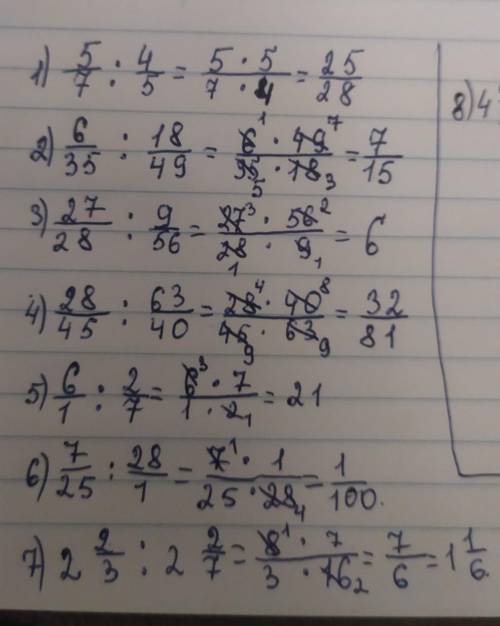 1) 5/7 : 4/5 = 5·5/7·4 = 25/28
8) 4
2) 6/35 : 18/49 = 6 1·49 7/35 5·18 3 = 7/15
3) 27/28 : 9/56 = 27 3·56 2/28 1·9 1 = 6
4) 28/45 : 63/40 = 28 4·40 8/45 9·63 9 = 32/81
5) 6/1 : 2/7 = 6 3·7/1·2 1 = 21
6) 7/25 : 28/1 = 7 1·1/25·28 4 = 1/100.
7) 2 2/3 : 2 2/7 = 8 1·7/3·16 2 = 7/6 = 1 1/6